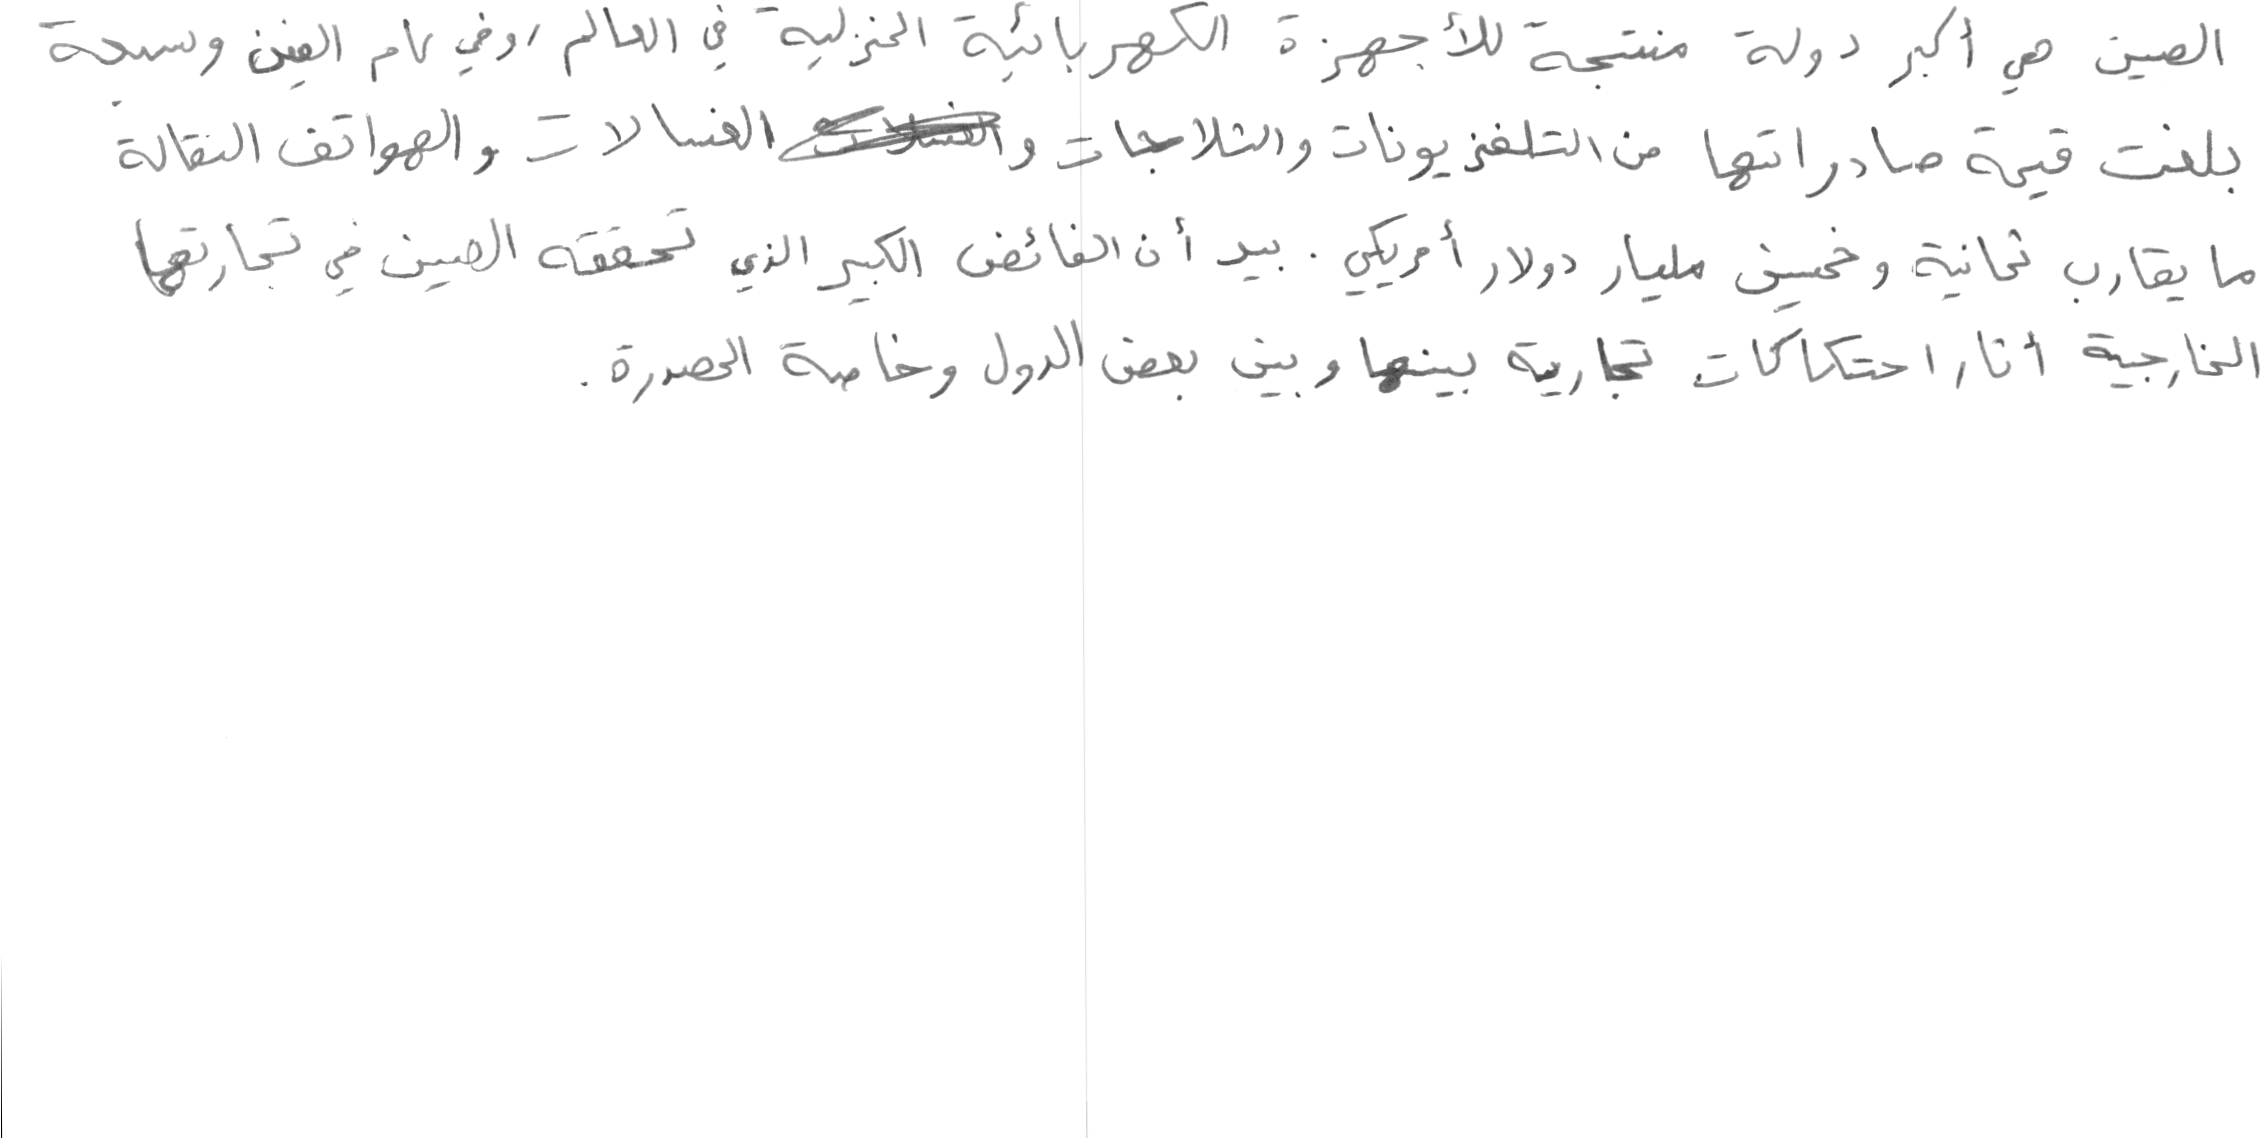 الصين هي أكبر دولة منتجة للأجهزة الكهربائية المنزلية في العالم، وفي عام الفين وسبعة
بلغت قيمة صادراتها من التلفزيونات والثلاجات و الغسالات والهواتف النقالة
ما يقارب ثمانية وخمسين مليار دولار أمريكي. بيد أن الفائض الكبير الذي تحققه الصين في تجارتها
الخارجية أثار احتكاكات تجارية بينها وبين بعض الدول وخاصة المصدرة.